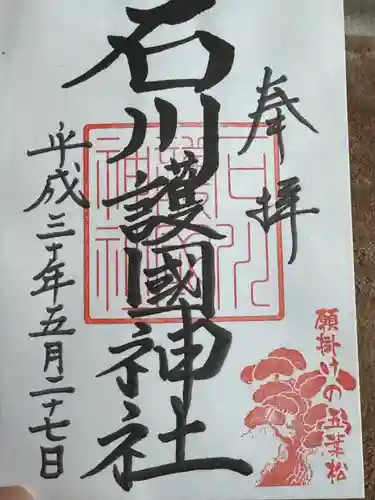 奉拝
石川護國神社
平成三十年五月二十七日
石川護國神社
願掛けの五葉松